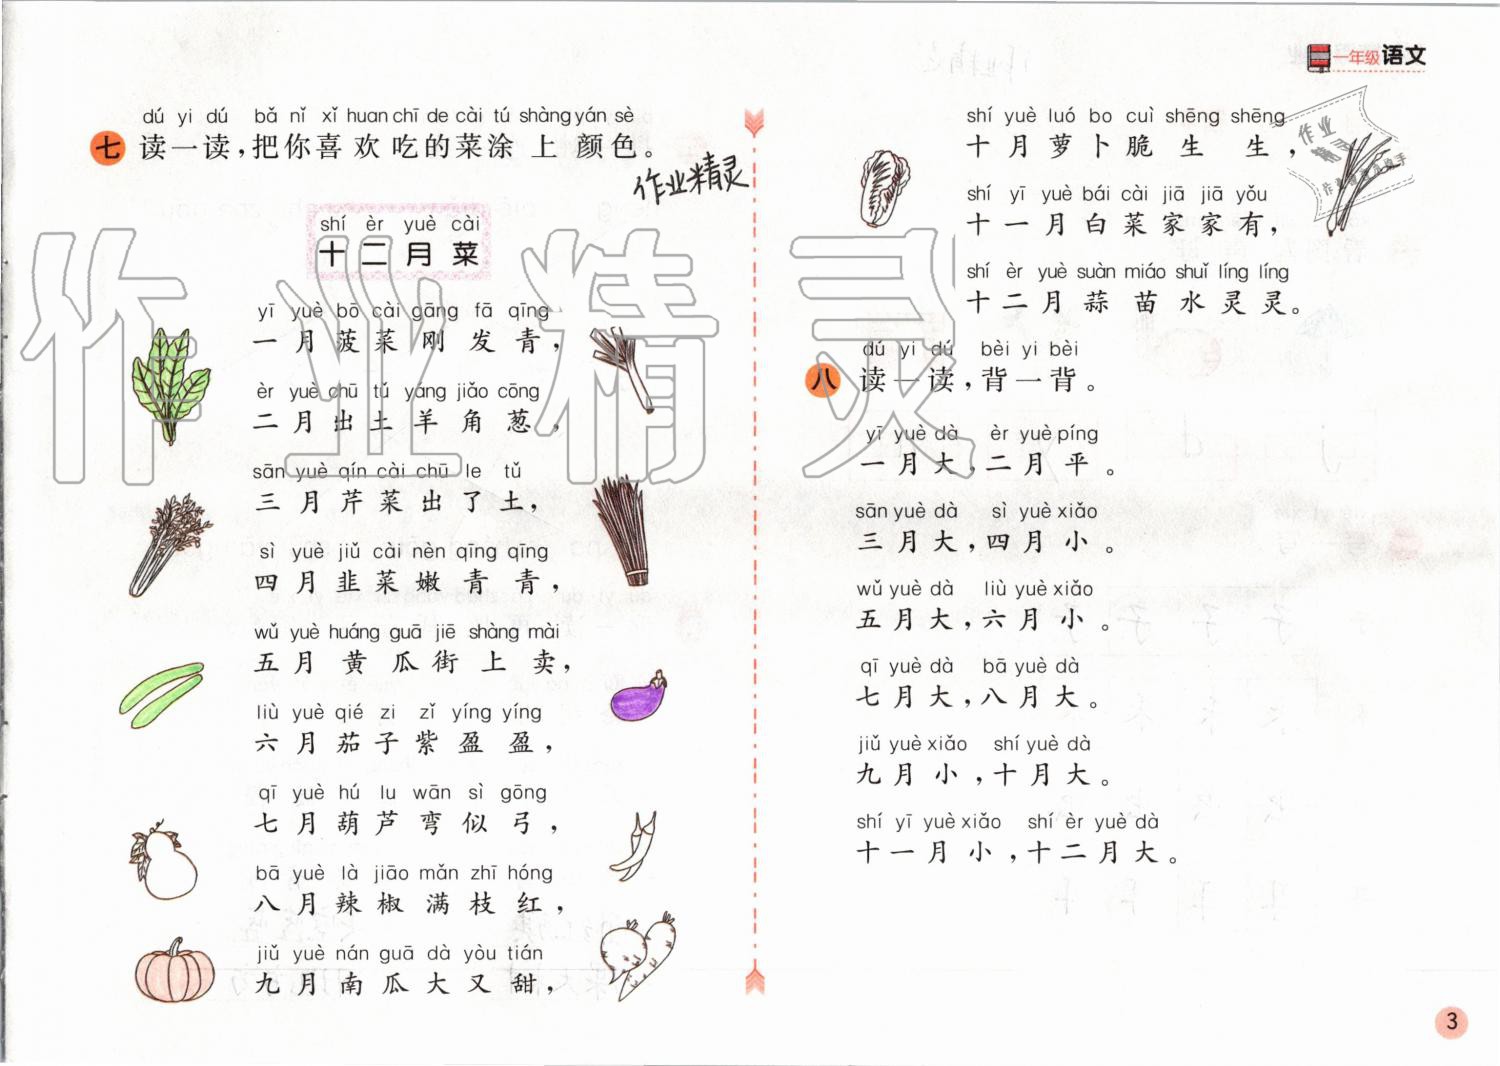 一年级 语文
dú yi dú bǎ nǐ xǐ huan chī de cài tú shàng yán sè
七 读一读，把你喜欢吃的菜涂上颜色。
作业精灵
shí èr yuè cài
十二月菜
yī yuè bō cài gāng fā qīng
一月菠菜刚发青，
èr yuè chū tǔ yáng jiǎo cōng
二月出土羊角葱，
sān yuè qín cài chū le tǔ
三月芹菜出了土，
sì yuè jiǔ cài nèn qīng qīng
四月韭菜嫩青青，
wǔ yuè huáng guā jiē shàng mài
五月黄瓜街上卖，
liù yuè qié zi zǐ yíng yíng
六月茄子紫盈盈，
qī yuè hú lu wān sì gōng
七月葫芦弯似弓，
bā yuè là jiāo mǎn zhī hóng
八月辣椒满枝红，
jiǔ yuè nán guā dà yòu tián
九月南瓜大又甜，
shí yuè luó bo cuì shēng shēng
十月萝卜脆生生，
shí yī yuè bái cài jiā jiā yǒu
十一月白菜家家有，
shí èr yuè suàn miáo shuǐ líng líng
十二月蒜苗水灵灵。
dú yi dú bèi yi bèi
八 读一读，背一背。
yī yuè dà èr yuè píng
一月大，二月平。
sān yuè dà sì yuè xiǎo
三月大，四月小。
wǔ yuè dà liù yuè xiǎo
五月大，六月小。
qī yuè dà bā yuè dà
七月大，八月大。
jiǔ yuè xiǎo shí yuè dà
九月小，十月大。
shí yī yuè xiǎo shí èr yuè dà
十一月小，十二月大。
作业精灵
3